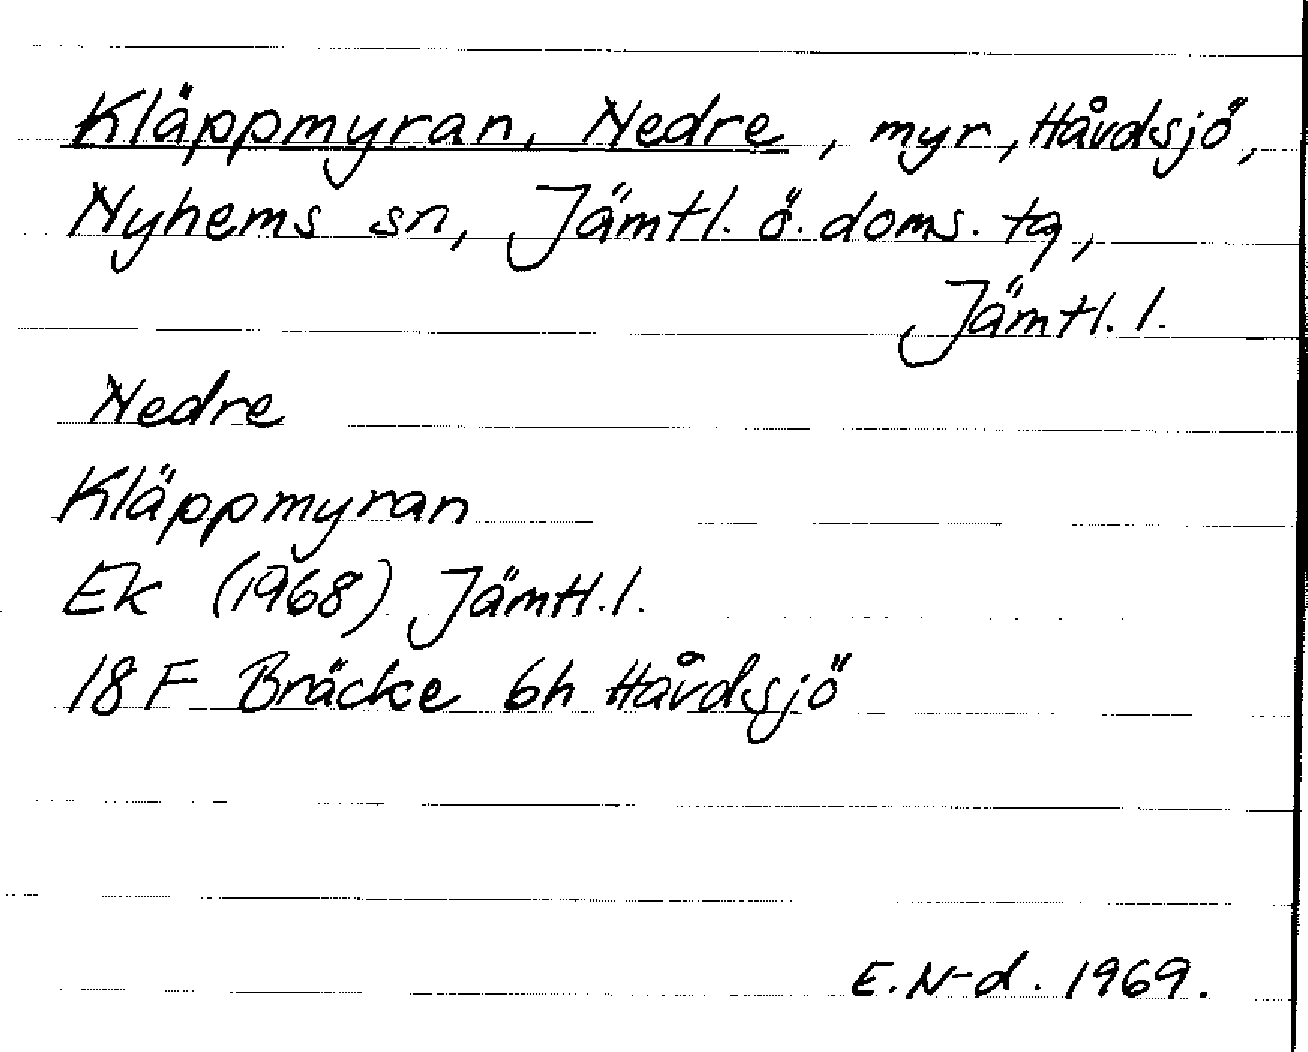 Kläppmyran, Nedre, myr, Håvdsjö,
Nyhems sn, Jämtl. ö. doms. tg,
Jämtl. l.
Nedre
Kläppmyran
Ek (1968) Jämtl. l.
18 F Bräcke 6h Håvdsjö
E. N-d. 1969.